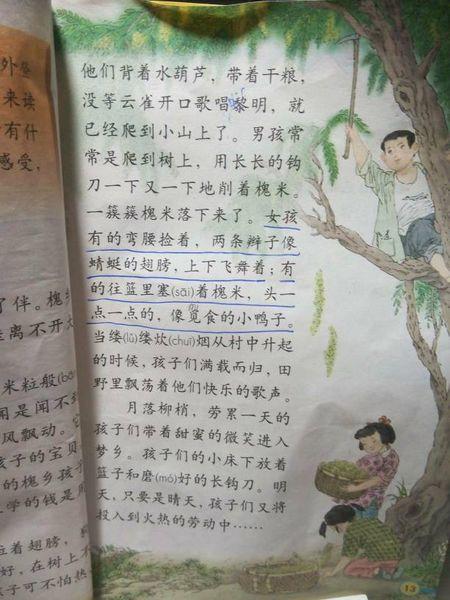 外登
来读
有什
感受，
他们背着水葫芦，带着干粮，
没等云雀开口歌唱黎明，就
已经爬到小山上了。男孩常
常是爬到树上，用长长的钩
刀一下又一下地削着槐米。
一簇簇槐米落下来了。女孩
有的弯腰捡着，两条辫子像
蜻蜓的翅膀，上下飞舞着；有
的往篮里塞(sāi)着槐米，头一
点一点的，像觅食的小鸭子。
当缕(lǚ)缕炊(chuī)烟从村中升起
的时候，孩子们满载而归，田
野里飘荡着他们快乐的歌声。
月落柳梢，劳累一天的
孩子们带着甜蜜的微笑进入
梦乡。孩子们的小床下放着
篮子和磨(mó)好的长钩刀。明
天，只要是晴天，孩子们又将
投入到火热的劳动中……
了伴。槐
离不开
米粒般(bā
用是闻不到
风飘动。它
孩子的宝贝
的槐乡孩子
学的钱是用
着翅膀，
好，在树上不
孩子可不怕热
13